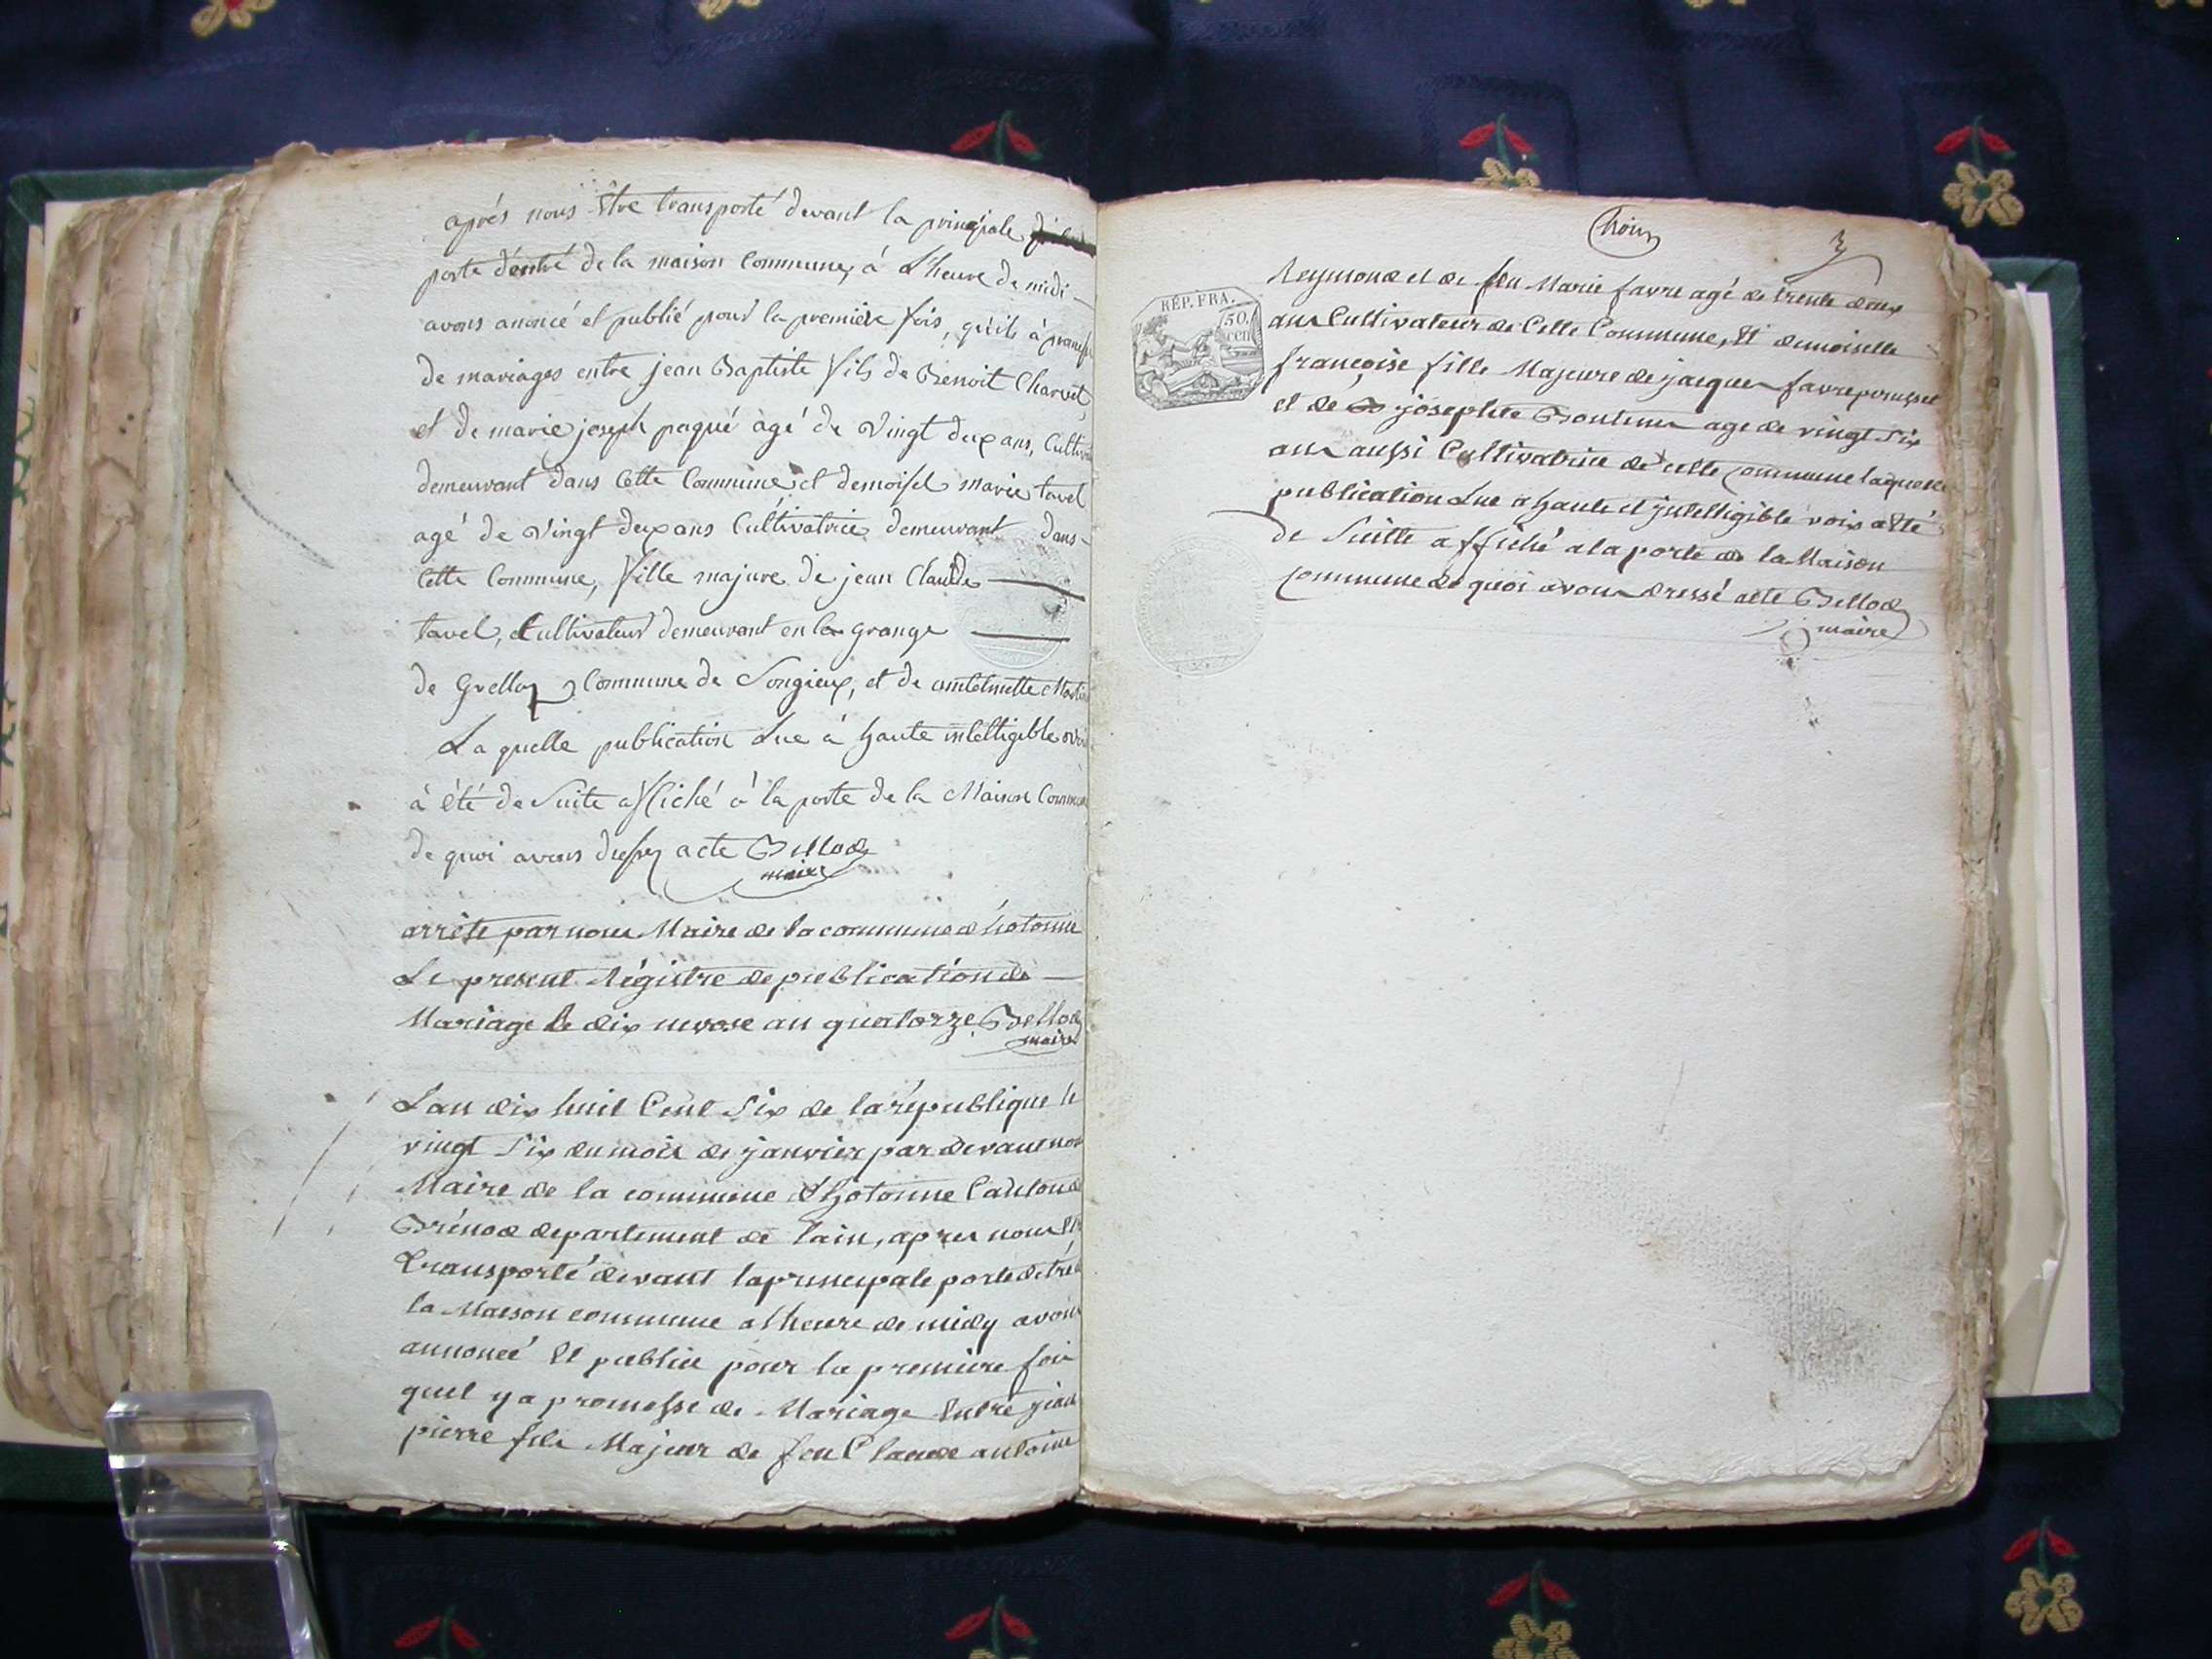 après nous être transporté devant la principale
porte d'entré de la maison Commune, à L'heure de midi
avons anoncé et publié pour la premiere fois, qu'ils à
de mariages entre jean Baptiste fils de Benoit Charvet
et de marie joseph paqué agé de vingt deux ans,
demeurant dans Cette Commune et demoisel marie tavel
agé de vingt deux ans Cultivatrice demeurant dans
Cette Commune, fille majure de jean Claude
tavel, Cultivateur demeurant en la grange
de Commune de Songieux, et de
La quelle publication Lue à haute intelligible
à été de suite affiché à la porte de la Maison
de quoi avons acte Bellod
maire
arrêté par nous Maire de la commune d'hotonne
Le present Régistre de publication de
Mariage le dix nivose an quatorze Bellod
maire
Lan dix huit Cent Six de la république le
vingt Six du mois de janvier par devant nous
Maire de la commune d'hotonne Canton de
Brénod departement de lain, apres nous
transporté devant la principale porte
la Maison commune a lheure de midy avons
annoncé Et publié pour la premiere fois
quil y a promesse de Mariage Entre jean
pierre fils Majeur de feu Claude antoine
3
RÉP. FRA.
50.
cen
Reymond et de feu Marie favre agé de trente deux
ans Cultivateur de Cette Commune, Et demoiselle
françoise fille Majeure de jacques
et de josephte agé de vingt Six
ans aussi Cultivatrice de cette commune laquelle
publication Lue a haute et jntelligible voix a Eté
de Suitte affiché a la porte de la Maison
commune de quoi avons dressé acte Bellod
maire